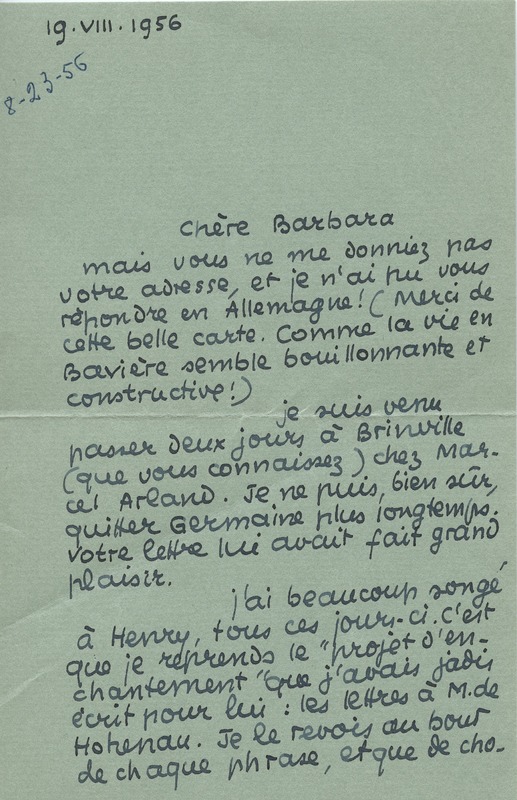 19.VIII.1956
8-23-56
Chère Barbara
mais vous ne me donniez pas
votre adresse, et je n'ai pu vous
répondre en Allemagne! (Merci de
cette belle carte. Comme la vie en
Bavière semble bouillonnante et
constructive!)
je suis venu
passer deux jours à Brinville
(que vous connaissez) chez Mar-
cel Arland. Je ne puis, bien sûr,
quitter Germaine plus longtemps.
Votre lettre lui avait fait grand
plaisir.
j'ai beaucoup songé
à Henry, tous ces jours-ci. C'est
que je reprends le "projet d'en-
chantement" que j'avais jadis
écrit pour lui : les lettres à M. de
Hohenau. Je le revois au bout
de chaque phrase, et que de cho-